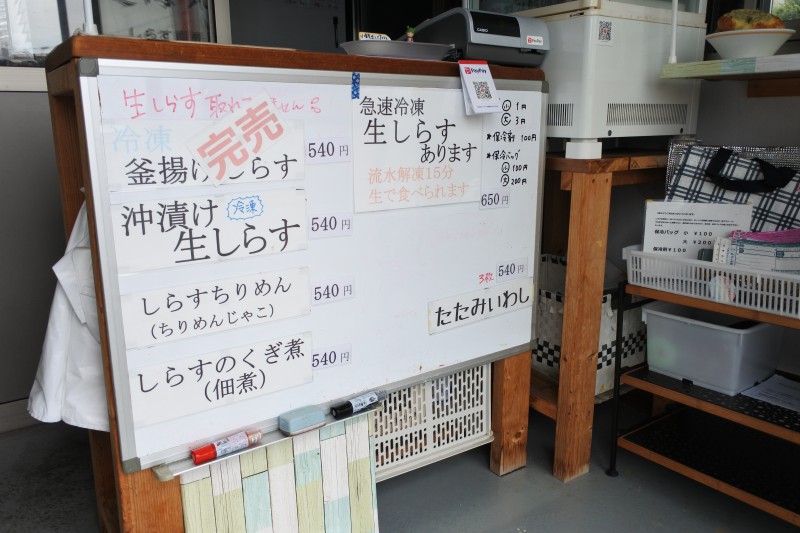 生しらす
冷凍
完売
釜揚げしらす
540円
沖漬け 冷凍
生しらす
540円
しらすちりめん
(ちりめんじゃこ)
540円
しらすのくぎ煮
(佃煮)
540円
急速冷凍
生しらす
あります
流水解凍15分
生で食べられます
650円
小 1円
大 3円
*保冷剤 100円
*保冷バッグ
小 100円
大 200円
3枚 540円
たたみいわし
PayPay
CASIO
保冷バッグ 小 ¥100
大 ¥200
保冷剤 ¥100